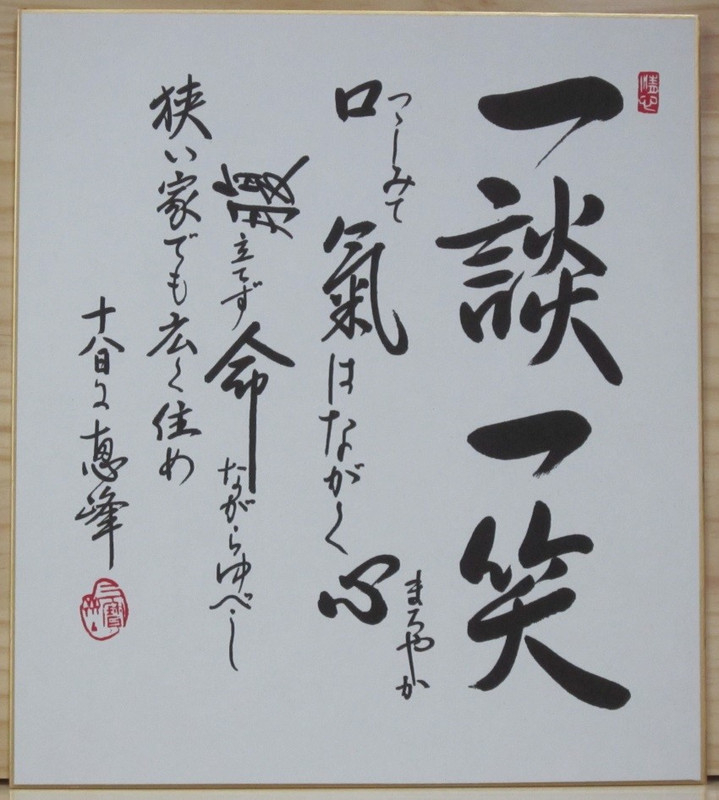 一談一笑
口つゝしみて氣はながく心まろやか
腹立てず命ながらゆべし
狭い家でも広く住め
恵峰